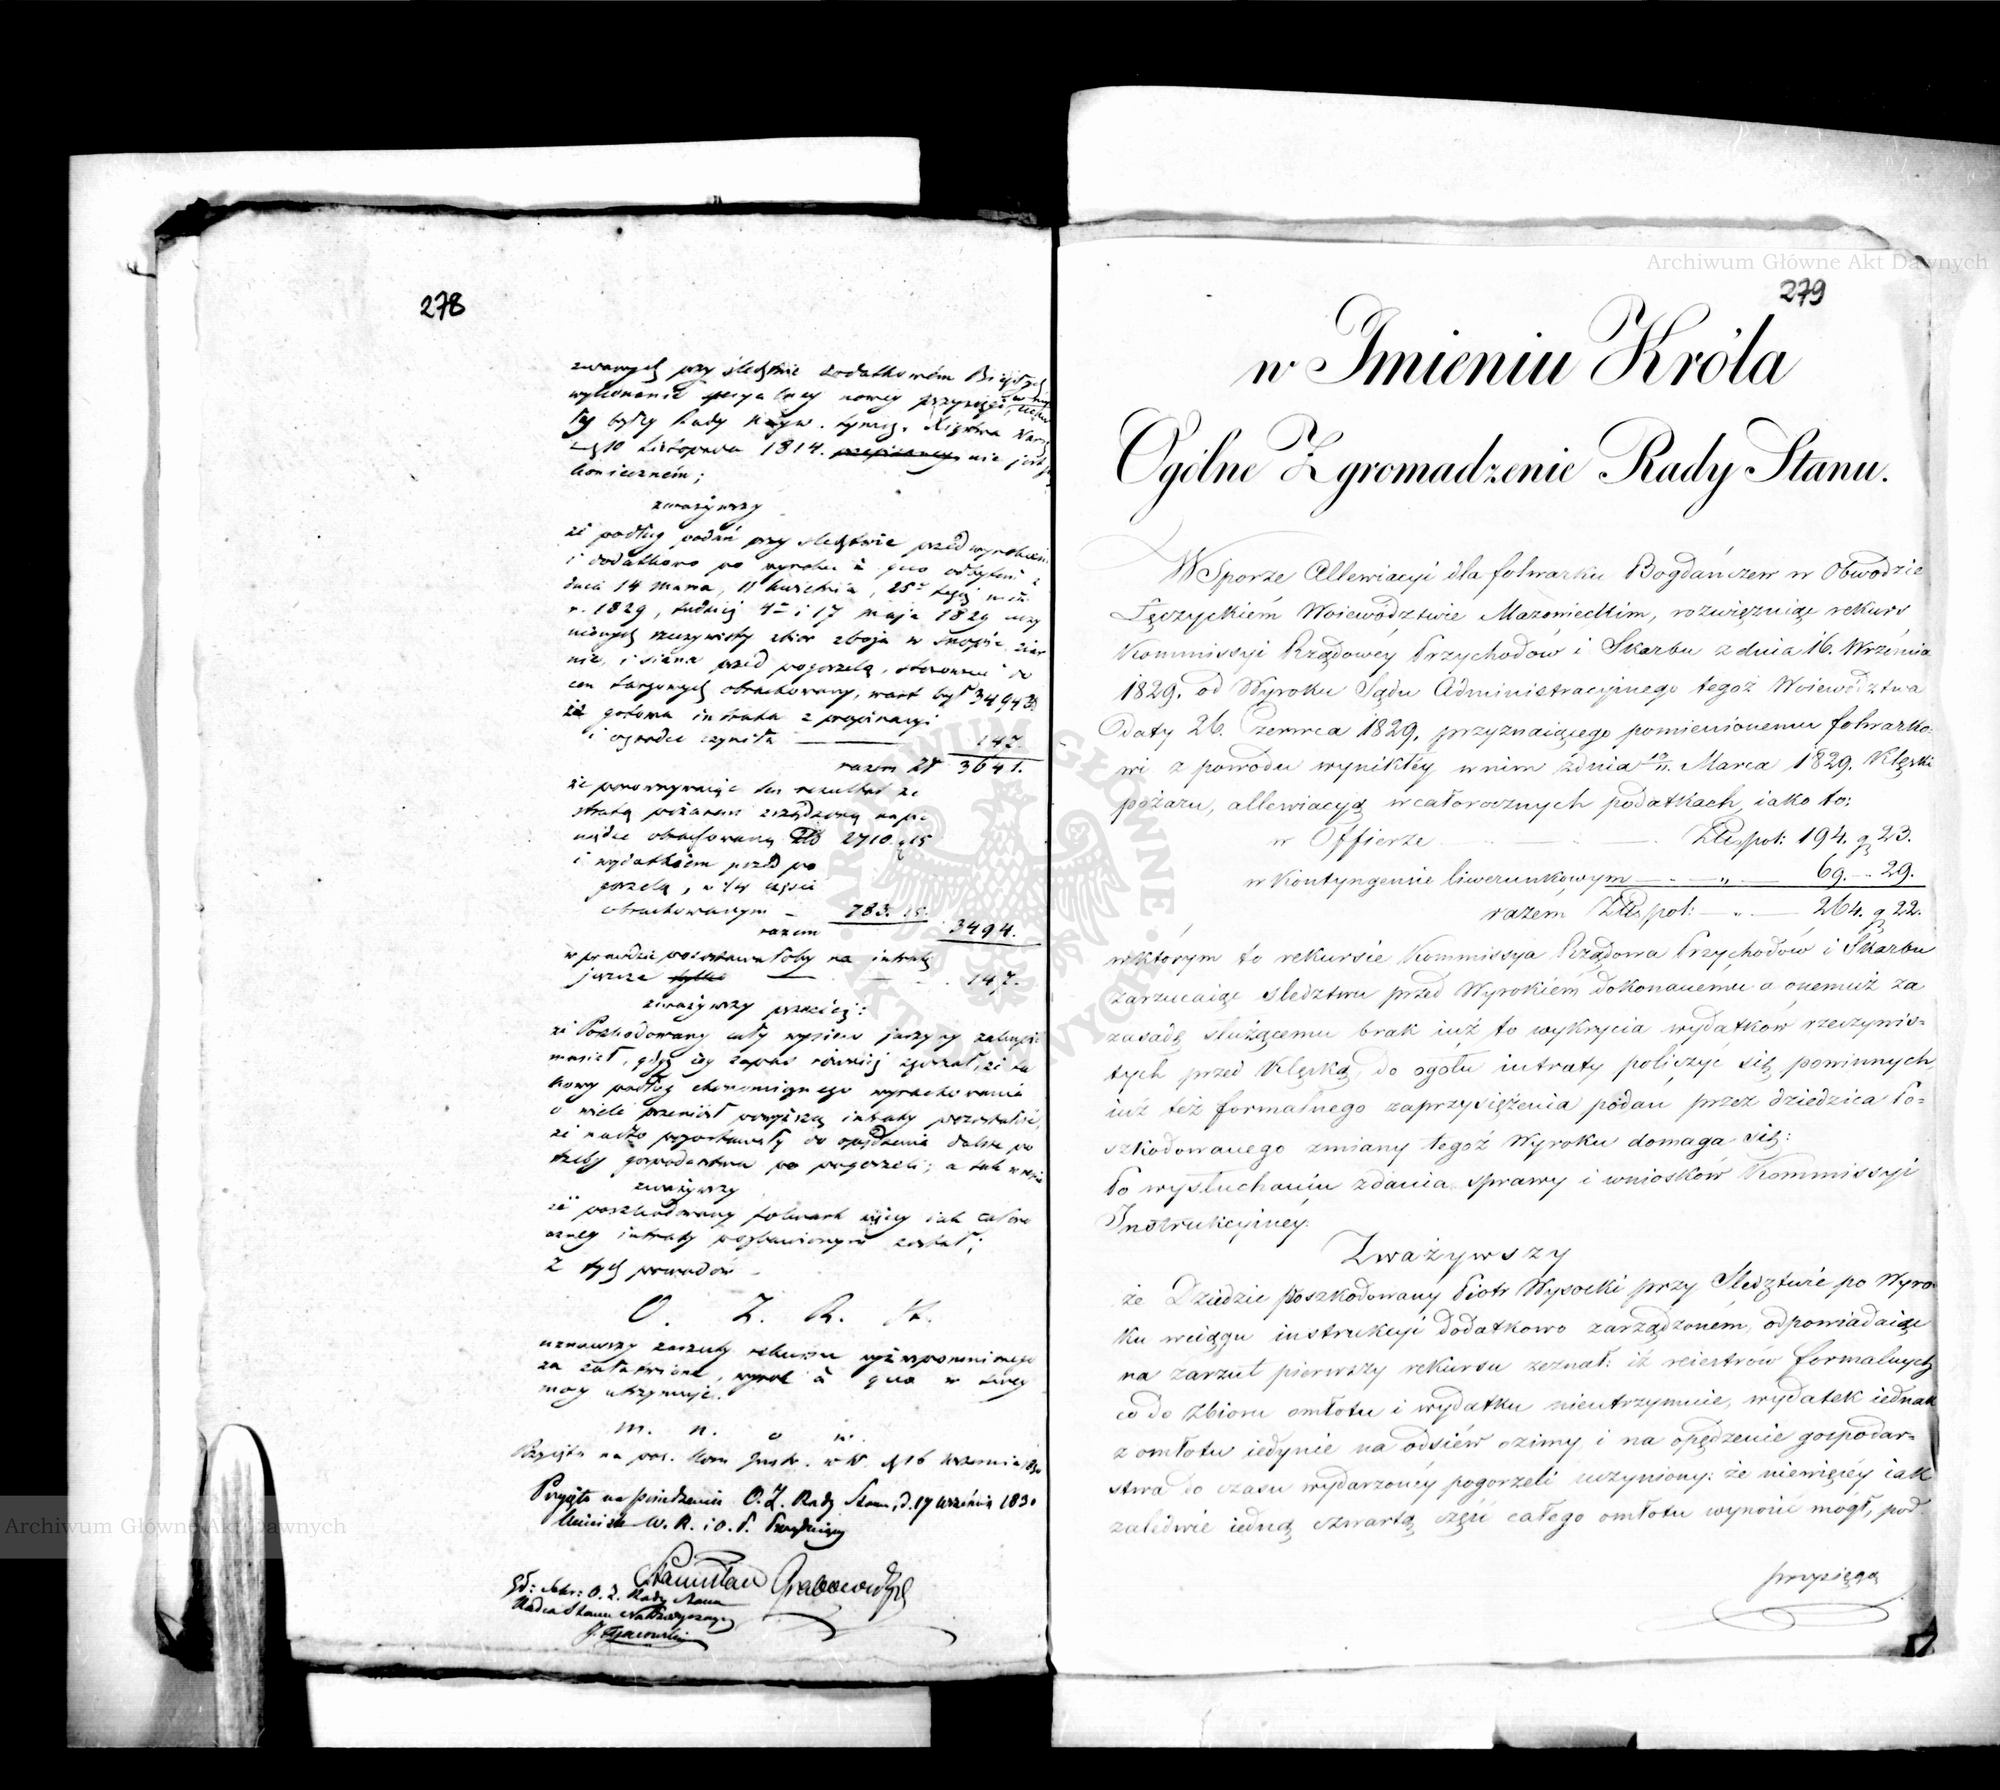 278
zwanych przy śledztwie dodatkowém Biegłych
wykonanie specyalney nowey przysięgi,
téy byłey Rady Nayw. tymcz. Xięstwa
10 Listopada 1814. nie jest
koniecznem;
zważywszy
że podług podań przy śledztwie przed wyrokiem
i dodatkowo po wyroku à quo odbytem z
dnia 14 Marca, 11 kwietnia, 25
r. 1829, tudzież 4 i 17 maja 1829
rzeczywisty zbiór zboża w snopie, ziar
nie, i siana przed pogorzelą, stosownie do
cen targowych obrachowany, wart był 3494
że gotowa intrata z propinacyi
i ogrodu czyniła 147.
razem Zł 3641.
że porównywając ten rezultat ze
stratą pożarem zrządzoną na pie
niądze obrachowaną Złb 2710. g 15
i wydatkiem przed po
gorzelą, w 1/4 części
obrachowanym 783. 15.
razem 3494.
wprawdzie pozostawałoby na intratę
jeszcze 147.
zważywszy przecież:
że Poszkodowany cały wysiew jarzyny zakupić
musiał, gdyż iey zapas również zgorzał, że ta
kowy podług ekonomicznego wyrachowania
o wiele przeniósł powyższą intraty pozostałość,
że nadto pozostawały do opędzenia dalsze po
trzeby gospodarstwa po pogorzeli; a tak
zważywszy
że poszkodowany folwark więcy iak całoro
czney intraty pozbawionym został;
Z tych powodów
O. Z. R. S.
uznawszy zarzuty rekursu wyż wspomnionego
za załatwione, wyrok à quo w swey
mocy utrzymuje.
m. n. o. w.
Przyięto na pos. Kom Instr. w W. d 16 września 1830
Przyięto na posiedzeniu O. Z. Rady Stanu, d. 17 września 1830
Minister W. R. i O. P. Prezyduiący
Stanisław Grabowski
Sekr: O. Z. Rady Stanu
Radca Stanu Nadzwyczayny
279
w Imieniu Króla
Ogólne Zgromadzenie Rady Stanu.
W Sporze Allewiacyi dla folwarku Bogdańczew w Obwodzie
Łęczyckiém Woiewództwie Mazowieckim, rozwięzuiąc rekurs
Kommissyi Rządowéy Przychodów i Skarbu z dnia 16. Września
1829. od Wyroku Sądu Administracyinego tegoż Woiewództwa
Odaty 26. Czerwca 1829. przyznaiącego pomienionemu folwarko-
wi z powodu wynikłéy w nim zdnia 10/11. Marca 1829. Klęski
pożaru, allewiacyą w całorocznych podatkach, iako to:
w Offierze — Złł. pol: 194. g 23.
w Kontyngensie liwerunkowym — „ — 69. — 29.
razem Złł. pol: — „ — 264. g 22.
w którym to rekursie Kommissya Rządowa Przychodów i Skarbu
zarzucaiąc śledztwu przed Wyrokiem dokonanemu a onemuż za
zasadę służącemu brak iuż to wykrycia wydatków rzeczywis-
tych przed Klęską, do ogołu intraty policzyć się powinnych,
iuż też formalnego zaprzysiężenia podań przez dziedzica Po-
szkodowanego zmiany tegoż Wyroku domaga się:
Po wysłuchaniu zdania sprawy i wniosków Kommissyi
Instrukcyinéy.
Zważywszy
że Dziedzic poszkodowany Piotr Wysocki przy Śledztwie po Wyro-
ku wciągu instrukcyi dodatkowo zarządzoném, odpowiadaiąc
na zarzut pierwszy rekursu zeznał: iż reiestrów formalnych
co do zbioru omłotu i wydatku nieutrzymuie, wydatek iednak
z omłotu iedynie na odsiéw ozimy i na opędzenie gospodar-
stwa do czasu wydarzonéy pogorzeli uczyniony: że niewięcéy iak
zaledwie iedną czwartą część całego omłotu wynosić mógł, pod
przysięgą